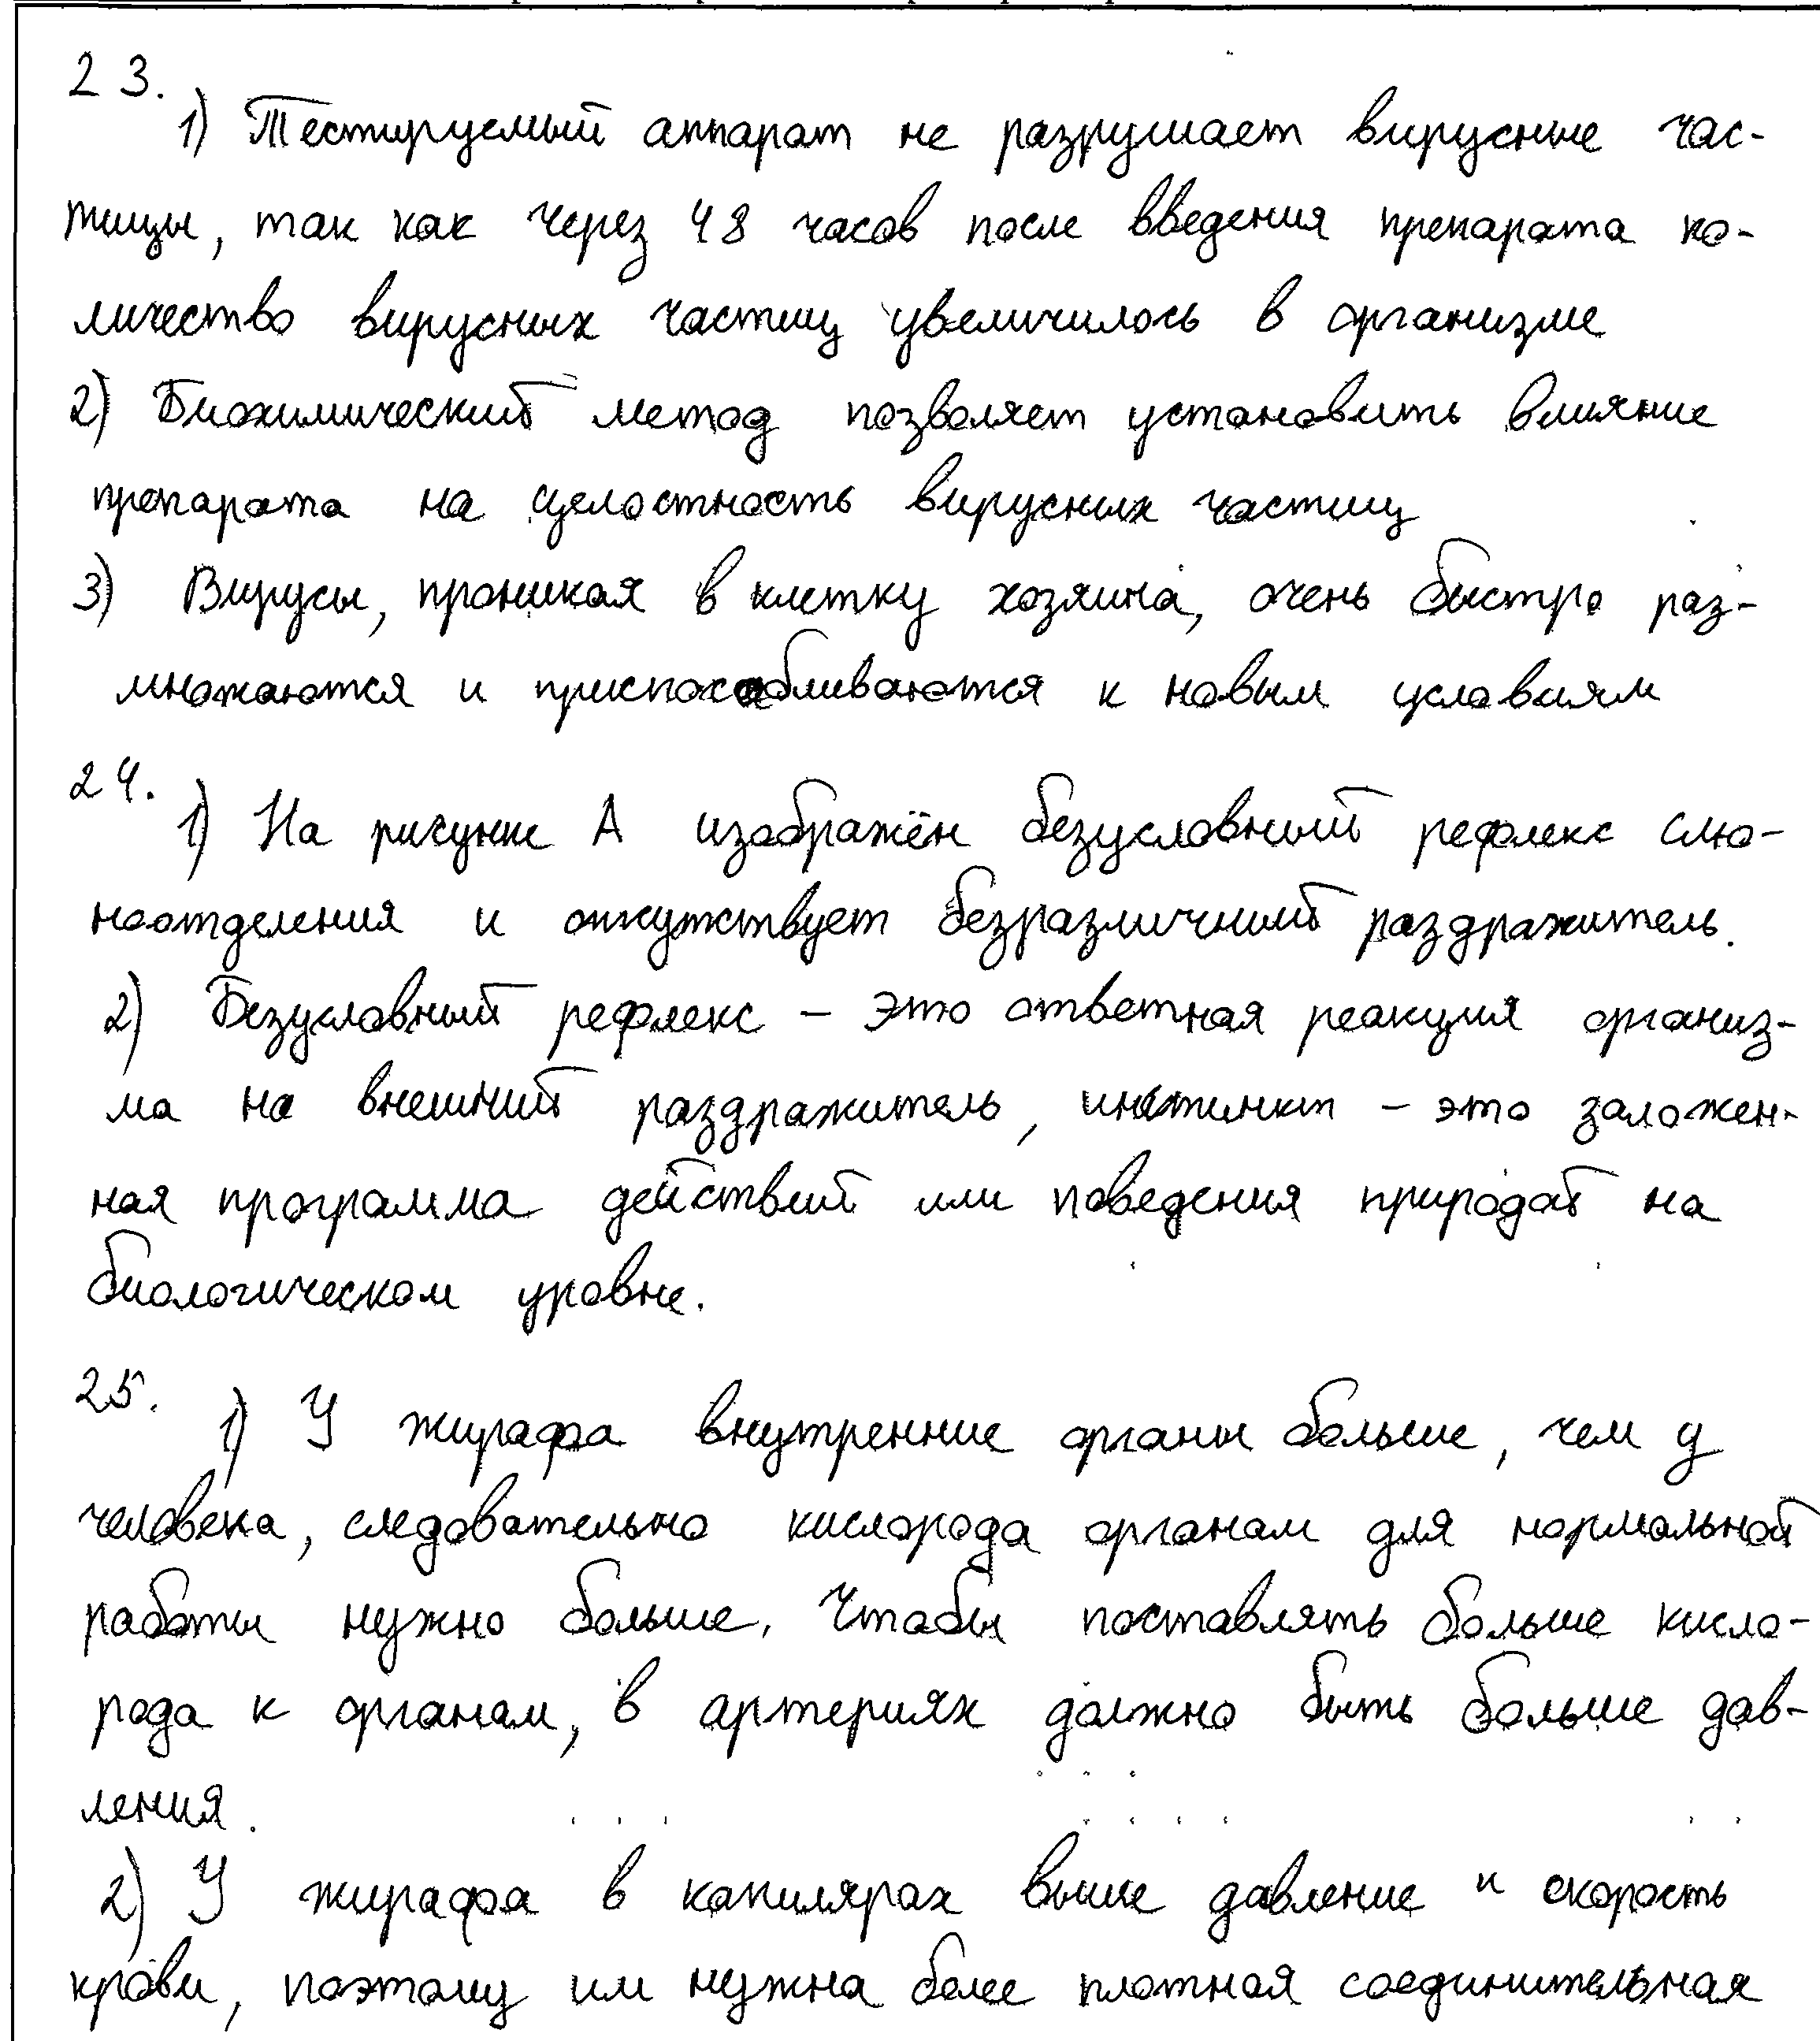 23.
1) Тестируемый аппарат не разрушает вирусные час-
тицы, так как через 48 часов после введения препарата ко-
личество вирусных частиц увеличилось в организме
2) Биохимический метод позволяет установить влияние
препарата на целостность вирусных частиц
3) Вирусы, проникая в клетку хозяина, очень быстро раз-
множаются и приспосабливаются к новым условиям
24.
1) На рисунке А изображён безусловный рефлекс слю-
ноотделения и отсутствует безразличный раздражитель.
2) Безусловный рефлекс – это ответная реакция организ-
ма на внешний раздражитель, инстинкт – это заложен-
ная программа действий или поведения природой на
биологическом уровне.
25.
1) У жирафа внутренние органы больше, чем у
человека, следовательно кислорода органам для нормальной
работы нужно больше. Чтобы поставлять больше кисло-
рода к органам, в артериях должно быть больше дав-
ления.
2) У жирафа в капилярах выше давление и скорость
крови, поэтому им нужна более плотная соединительная